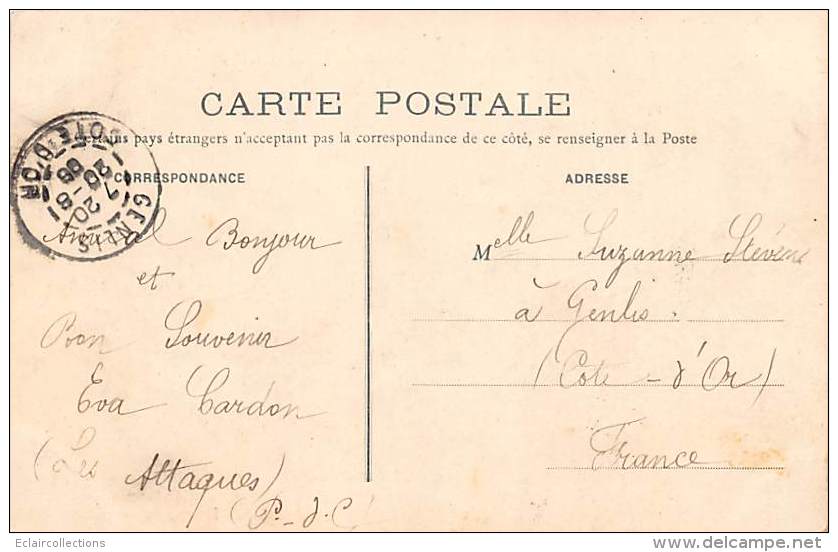 CARTE POSTALE
pays étrangers n'acceptant pas la correspondance de ce côté, se renseigner à la Poste
CORRESPONDANCE
ADRESSE
GENLIS
COTE D'OR
Amical Bonjour
et
Bon Souvenir
Eva Cardon
(Les Attaques)
(P.-d.C)
Melle Suzanne Stévenin
à Genlis.
(Cote-d'Or)
France
Eclaircollections
www.delcampe.net